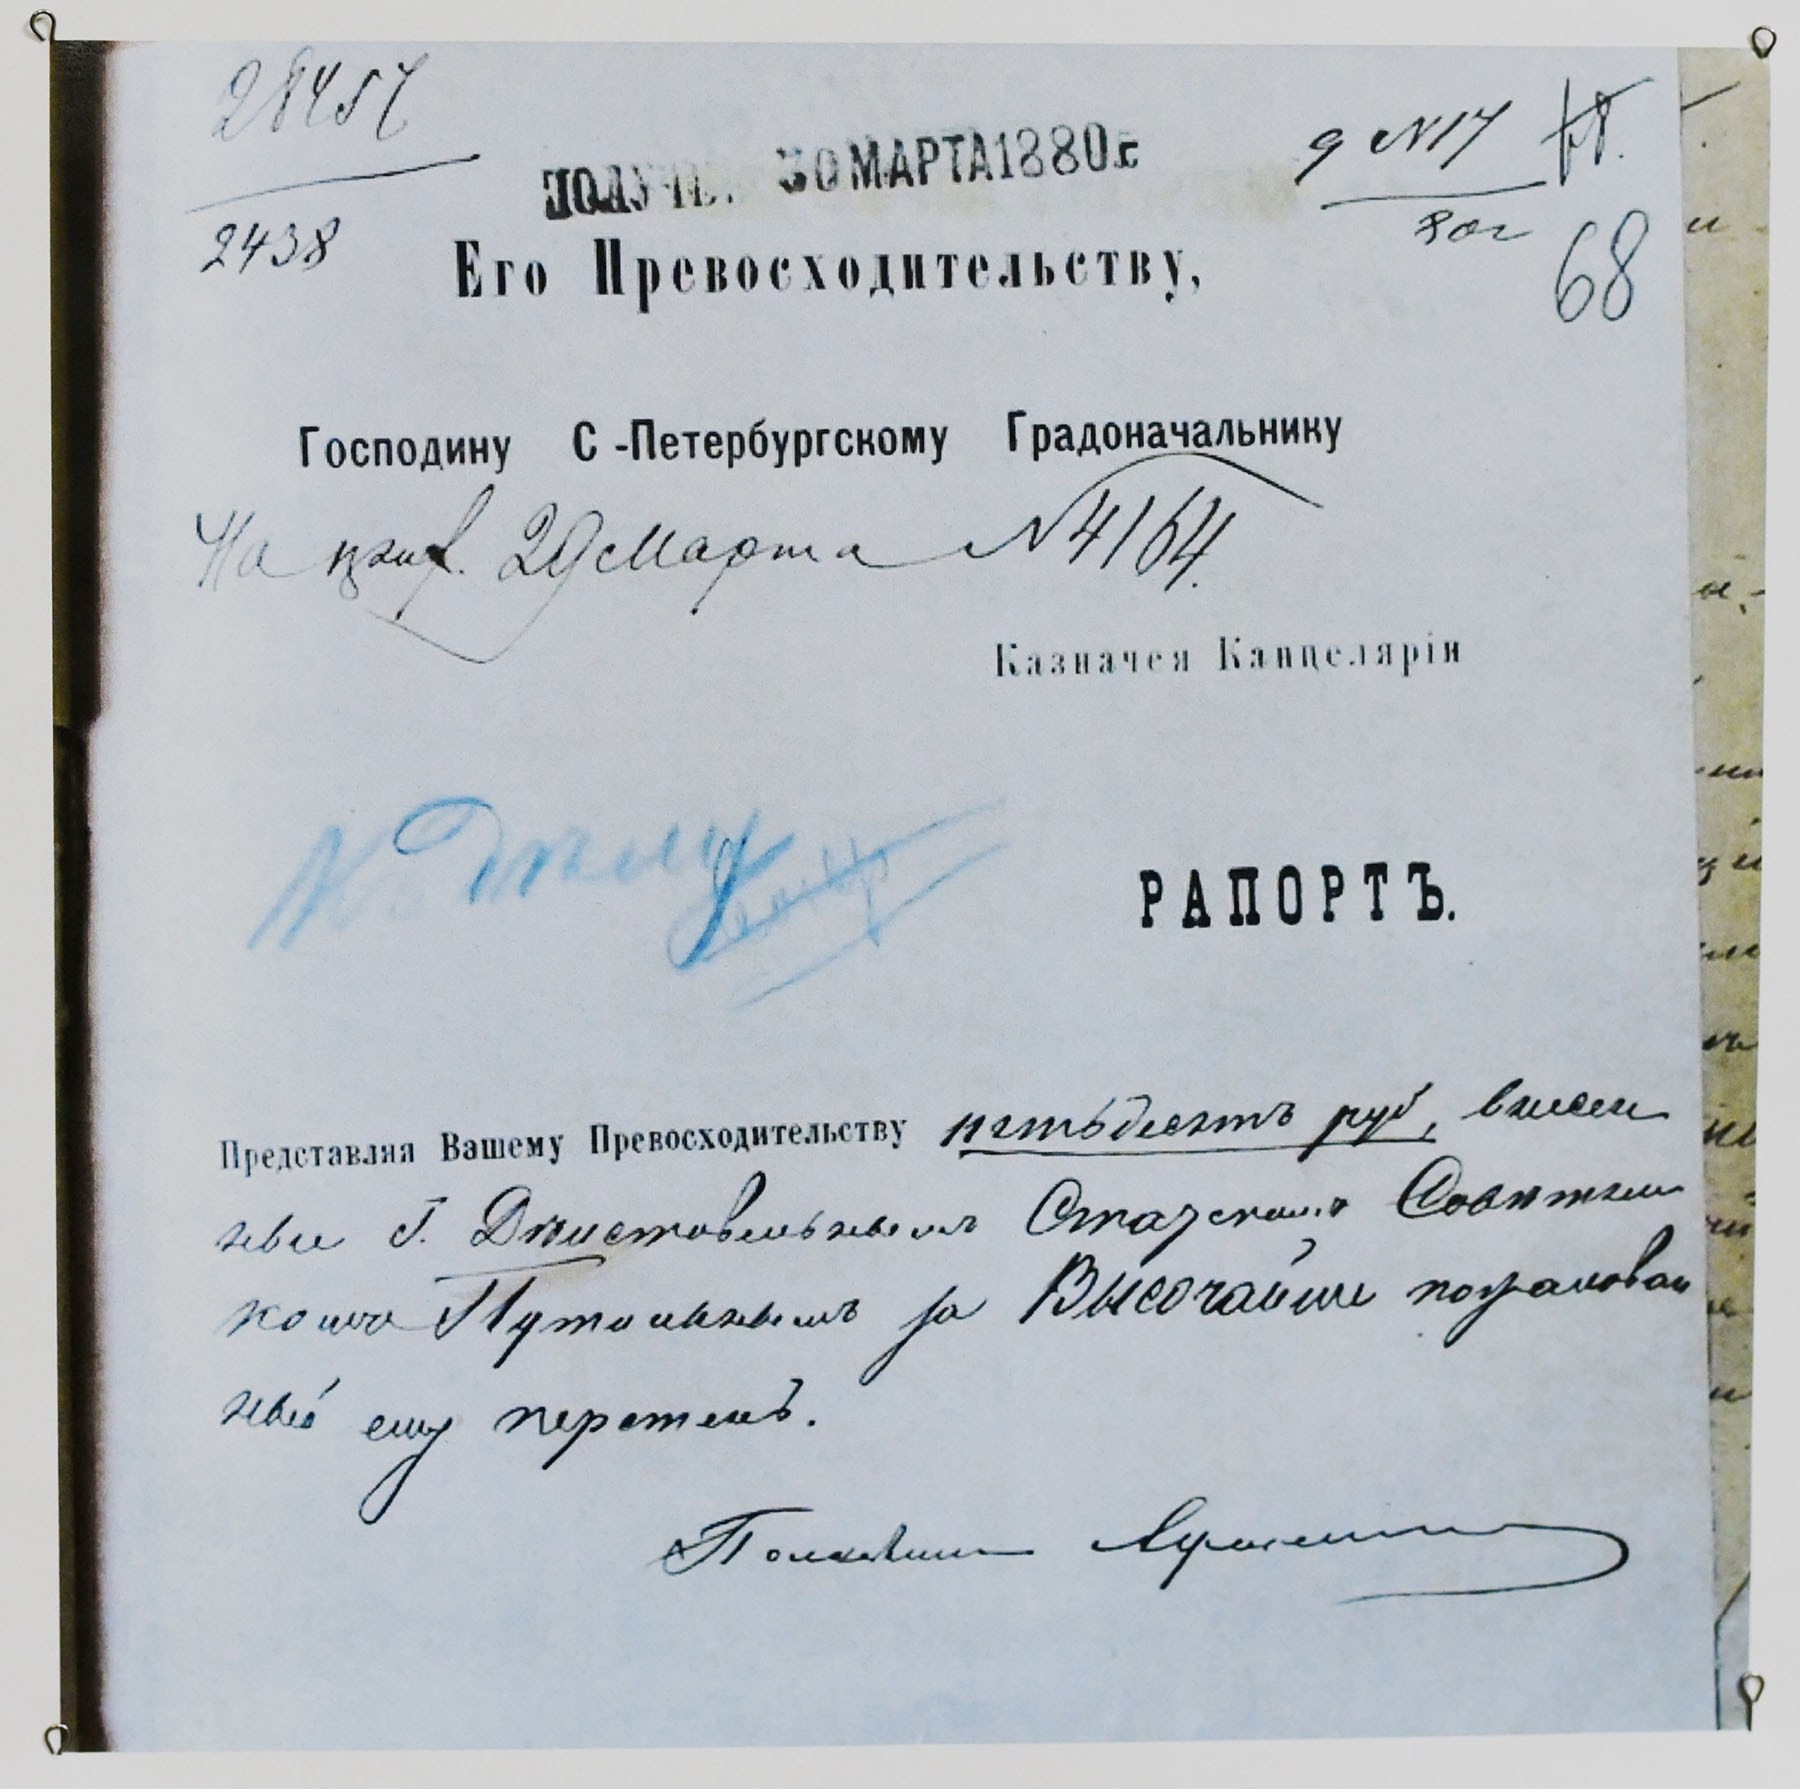 28457
2438
ПОЛУЧЕ. 30 МАРТА 1880 г
д №17
80 г
68
Его Превосходительству,
Господину С-Петербургскому Градоначальнику
На 29 Марта №4164.
Казначея Канцеляріи
Къ дѣлу
РАПОРТЪ.
Представляя Вашему Превосходительству пятьдесятъ руб, внесен
ные Г. Дѣйствительнымъ Статскимъ Совѣтни
комъ Путиловымъ за Высочайше пожалован
ный ему перстень.
Полковникъ